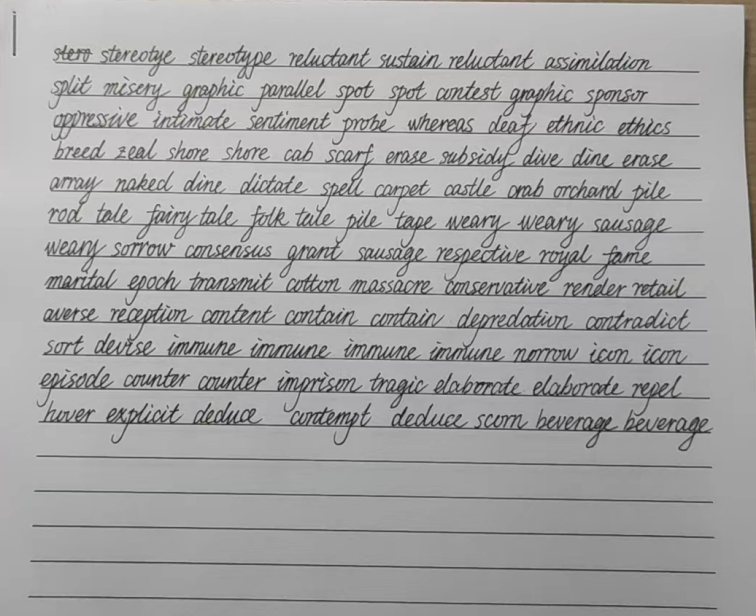 stero stereotye stereotype reluctant sustain reluctant assimilation
split misery graphic parallel spot spot contest graphic sponsor
oppressive intimate sentiment probe whereas deaf ethnic ethics
breed zeal shore shore cab scarf erase subsidy dive dine erase
array naked dine dictate spell carpet castle crab orchard pile
rod tale fairy tale folk tale pile tape weary weary sausage
weary sorrow consensus grant sausage respective royal fame
marital epoch transmit cotton massacre conservative render retail
averse reception content contain contain depredation contradict
sort devise immune immune immune immune norrow icon icon
episode counter counter imprison tragic elaborate elaborate repel
hover explicit deduce contempt deduce scorn beverage beverage